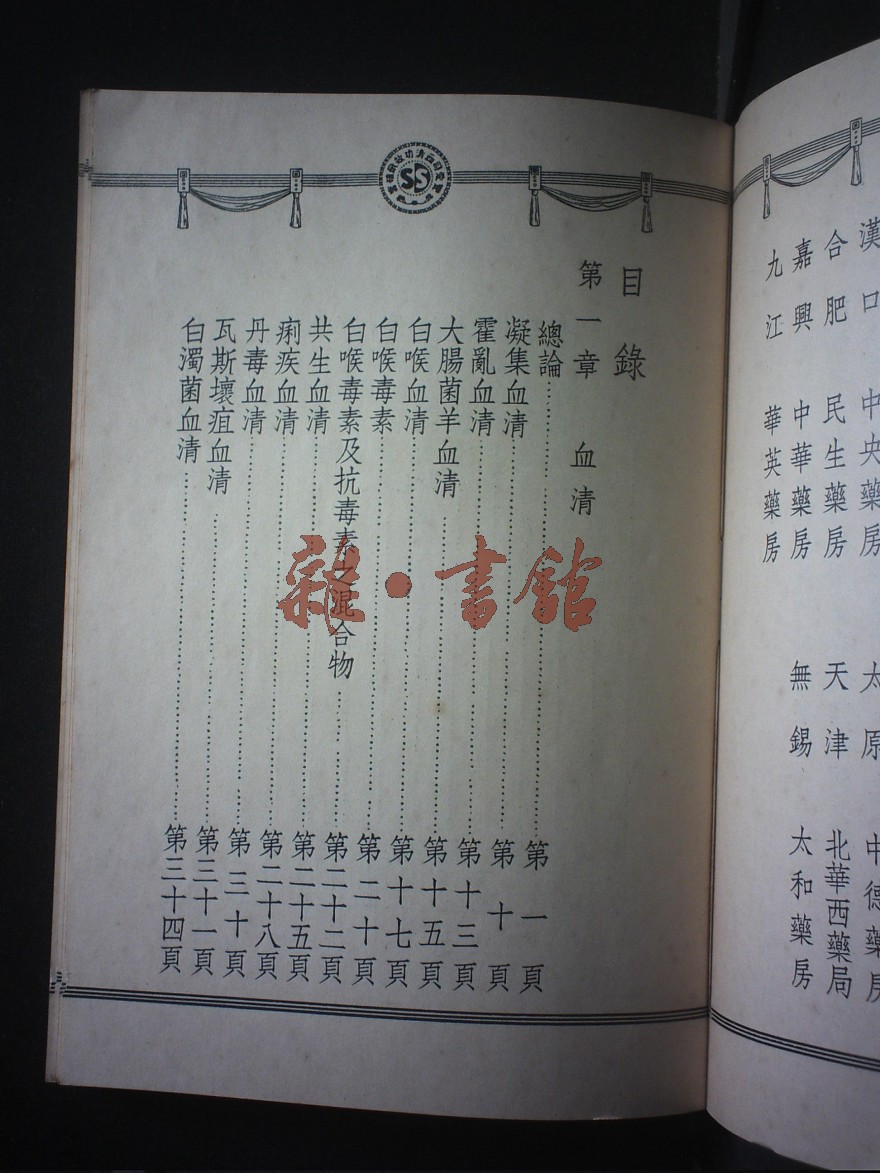 漢口 中央藥房 太原 中德藥房
合肥 民生藥房 天津 北華西藥局
嘉興 中華藥房 無錫 太和藥房
九江 華英藥房
目錄
第一章 血清
總論 第一頁
凝集血清 第十頁
霍亂血清 第十三頁
大腸菌羊血清 第十五頁
白喉血清 第十七頁
白喉毒素 第二十頁
白喉毒素及抗毒素之混合物 第二十二頁
共生血清 第二十五頁
痢疾血清 第二十八頁
丹毒血清 第三十頁
瓦斯壞疽血清 第三十一頁
白濁菌血清 第三十四頁
SS
雜·書館